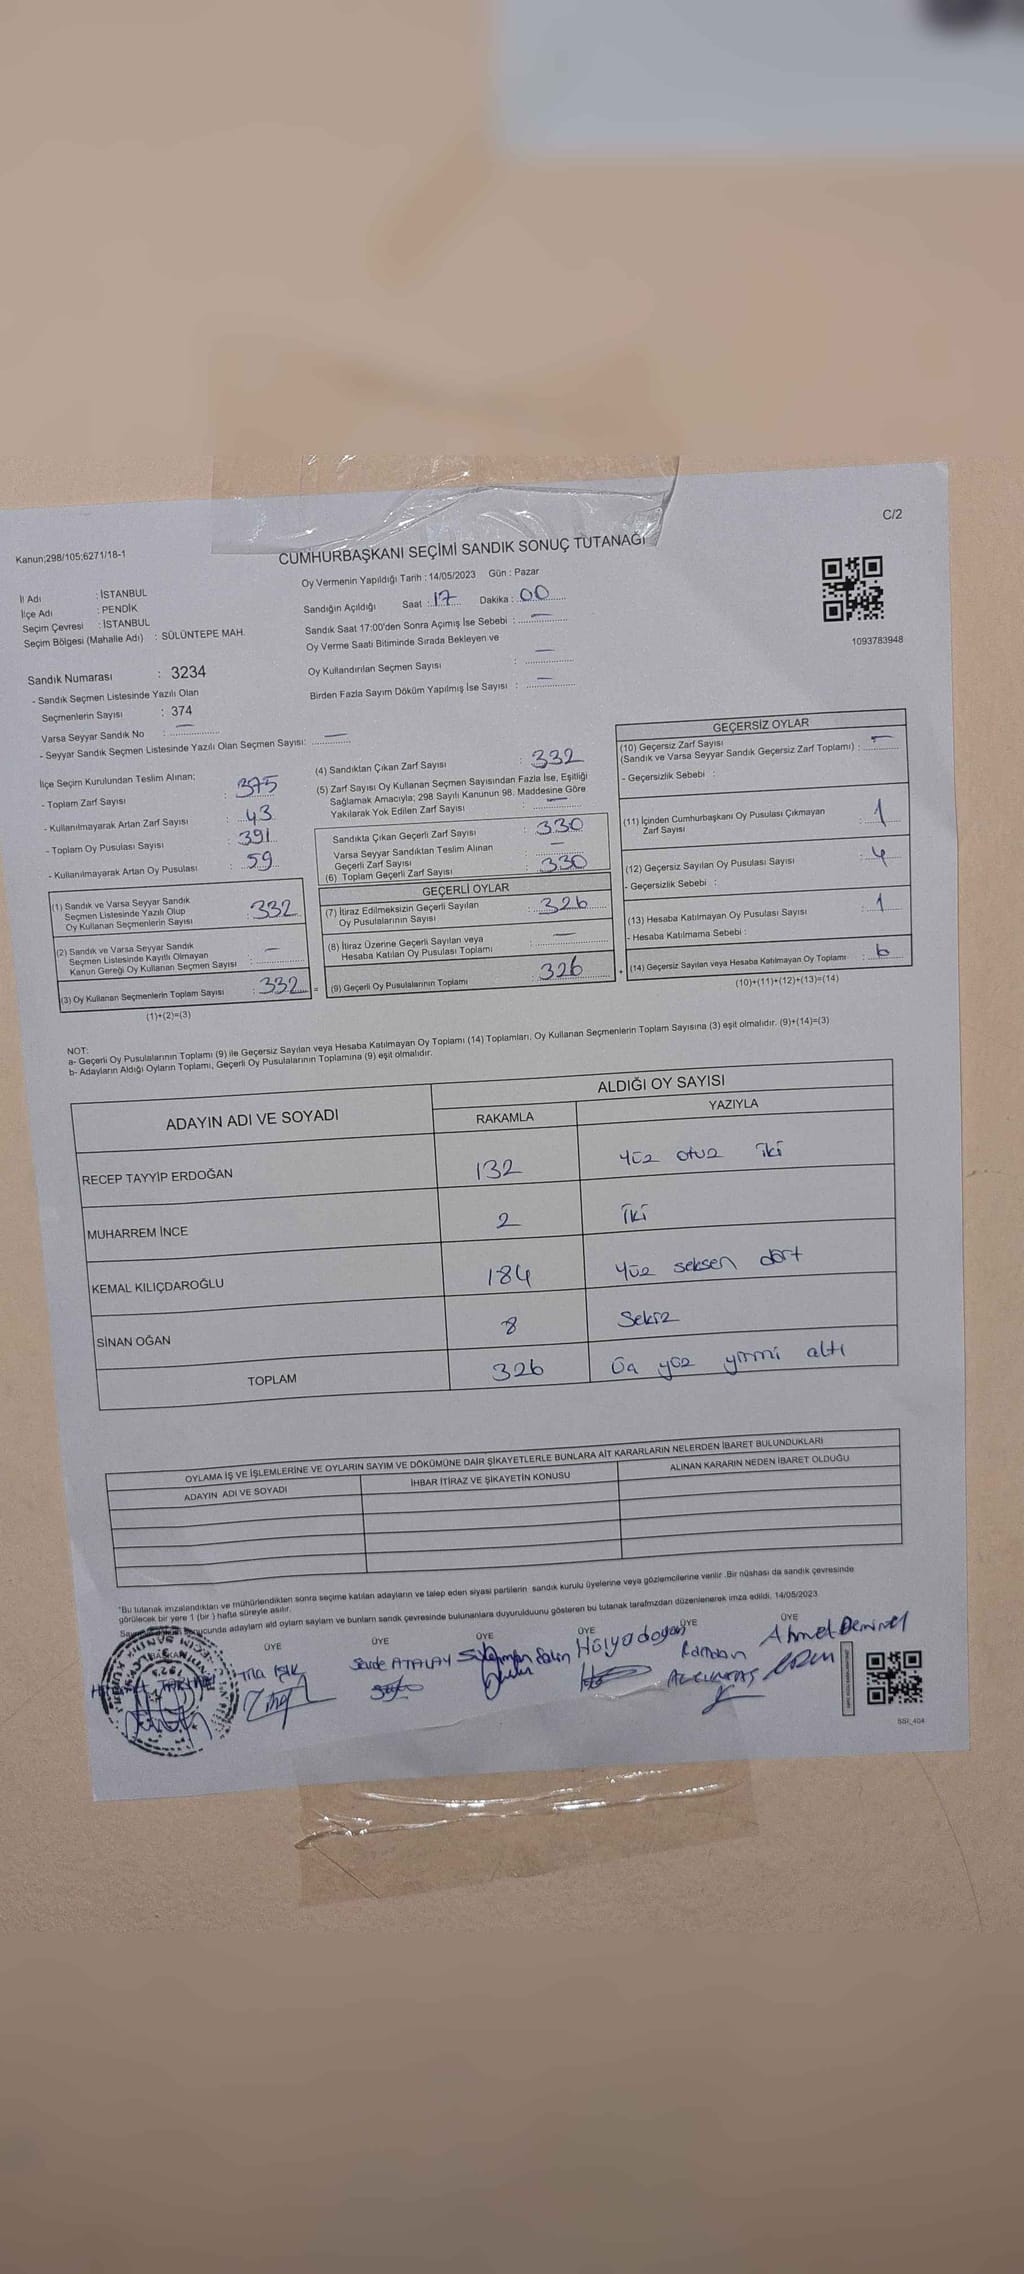 C/2
Kanun;298/105;6271/18-1
CUMHURBAŞKANI SEÇİMİ SANDIK SONUÇ TUTANAĞI
Oy Vermenin Yapıldığı Tarih : 14/05/2023 Gün : Pazar
İl Adı : İSTANBUL
İlçe Adı : PENDİK
Seçim Çevresi : İSTANBUL
Seçim Bölgesi (Mahalle Adı) : SÜLÜNTEPE MAH.
Sandığın Açıldığı Saat : 17 Dakika : 00
Sandık Saat 17:00'den Sonra Açımış İse Sebebi : —
Oy Verme Saati Bitiminde Sırada Bekleyen ve
Oy Kullandırılan Seçmen Sayısı : —
Birden Fazla Sayım Döküm Yapılmış İse Sayısı : —
1093783948
Sandık Numarası : 3234
- Sandık Seçmen Listesinde Yazılı Olan
Seçmenlerin Sayısı : 374
Varsa Seyyar Sandık No : —
- Seyyar Sandık Seçmen Listesinde Yazılı Olan Seçmen Sayısı: —
İlçe Seçim Kurulundan Teslim Alınan;
- Toplam Zarf Sayısı : 375
- Kullanılmayarak Artan Zarf Sayısı : 43
- Toplam Oy Pusulası Sayısı : 391
- Kullanılmayarak Artan Oy Pusulası : 59
(1) Sandık ve Varsa Seyyar Sandık
Seçmen Listesinde Yazılı Olup
Oy Kullanan Seçmenlerin Sayısı : 332
(2) Sandık ve Varsa Seyyar Sandık
Seçmen Listesinde Kayıtlı Olmayan
Kanun Gereği Oy Kullanan Seçmen Sayısı : —
(3) Oy Kullanan Seçmenlerin Toplam Sayısı : 332 =
(1)+(2)=(3)
(4) Sandıktan Çıkan Zarf Sayısı : 332
(5) Zarf Sayısı Oy Kullanan Seçmen Sayısından Fazla İse, Eşitliği
Sağlamak Amacıyla; 298 Sayılı Kanunun 98. Maddesine Göre
Yakılarak Yok Edilen Zarf Sayısı : —
Sandıkta Çıkan Geçerli Zarf Sayısı : 330
Varsa Seyyar Sandıktan Teslim Alınan
Geçerli Zarf Sayısı : —
(6) Toplam Geçerli Zarf Sayısı : 330
GEÇERLİ OYLAR
(7) İtiraz Edilmeksizin Geçerli Sayılan
Oy Pusulalarının Sayısı : 326
(8) İtiraz Üzerine Geçerli Sayılan veya
Hesaba Katılan Oy Pusulası Toplamı : —
(9) Geçerli Oy Pusulalarının Toplamı : 326 +
GEÇERSİZ OYLAR
(10) Geçersiz Zarf Sayısı
(Sandık ve Varsa Seyyar Sandık Geçersiz Zarf Toplamı) : —
- Geçersizlik Sebebi :
(11) İçinden Cumhurbaşkanı Oy Pusulası Çıkmayan
Zarf Sayısı : 1
(12) Geçersiz Sayılan Oy Pusulası Sayısı : 4
- Geçersizlik Sebebi :
(13) Hesaba Katılmayan Oy Pusulası Sayısı : 1
- Hesaba Katılmama Sebebi :
(14) Geçersiz Sayılan veya Hesaba Katılmayan Oy Toplamı : 6
(10)+(11)+(12)+(13)=(14)
NOT:
a- Geçerli Oy Pusulalarının Toplamı (9) ile Geçersiz Sayılan veya Hesaba Katılmayan Oy Toplamı (14) Toplamları, Oy Kullanan Seçmenlerin Toplam Sayısına (3) eşit olmalıdır. (9)+(14)=(3)
b- Adayların Aldığı Oyların Toplamı, Geçerli Oy Pusulalarının Toplamına (9) eşit olmalıdır.
ADAYIN ADI VE SOYADI
ALDIĞI OY SAYISI
RAKAMLA YAZIYLA
RECEP TAYYİP ERDOĞAN 132 Yüz otuz iki
MUHARREM İNCE 2 İki
KEMAL KILIÇDAROĞLU 184 Yüz seksen dört
SİNAN OĞAN 8 Sekiz
TOPLAM 326 Üç yüz yirmi altı
OYLAMA İŞ VE İŞLEMLERİNE VE OYLARIN SAYIM VE DÖKÜMÜNE DAİR ŞİKAYETLERLE BUNLARA AİT KARARLARIN NELERDEN İBARET BULUNDUKLARI
ADAYIN ADI VE SOYADI İHBAR İTİRAZ VE ŞİKAYETİN KONUSU ALINAN KARARIN NEDEN İBARET OLDUĞU
*Bu tutanak imzalandıktan ve mühürlendikten sonra seçime katılan adayların ve talep eden siyasi partilerin sandık kurulu üyelerine veya gözlemcilerine verilir .Bir nüshası da sandık çevresinde
görülecek bir yere 1 (bir ) hafta süreyle asılır.
sonucunda adayların aldı oyların sayları ve bunların sandk çevresinde bulunanlara duyurulduunu gösteren bu tutanak tarafmzdan düzenlenerek imza edildi. 14/05/2023
ÜYE ÜYE ÜYE ÜYE ÜYE ÜYE
IŞIK ATALAY Hülya doğan Ramazan Ahmet Demirel
SSI_404